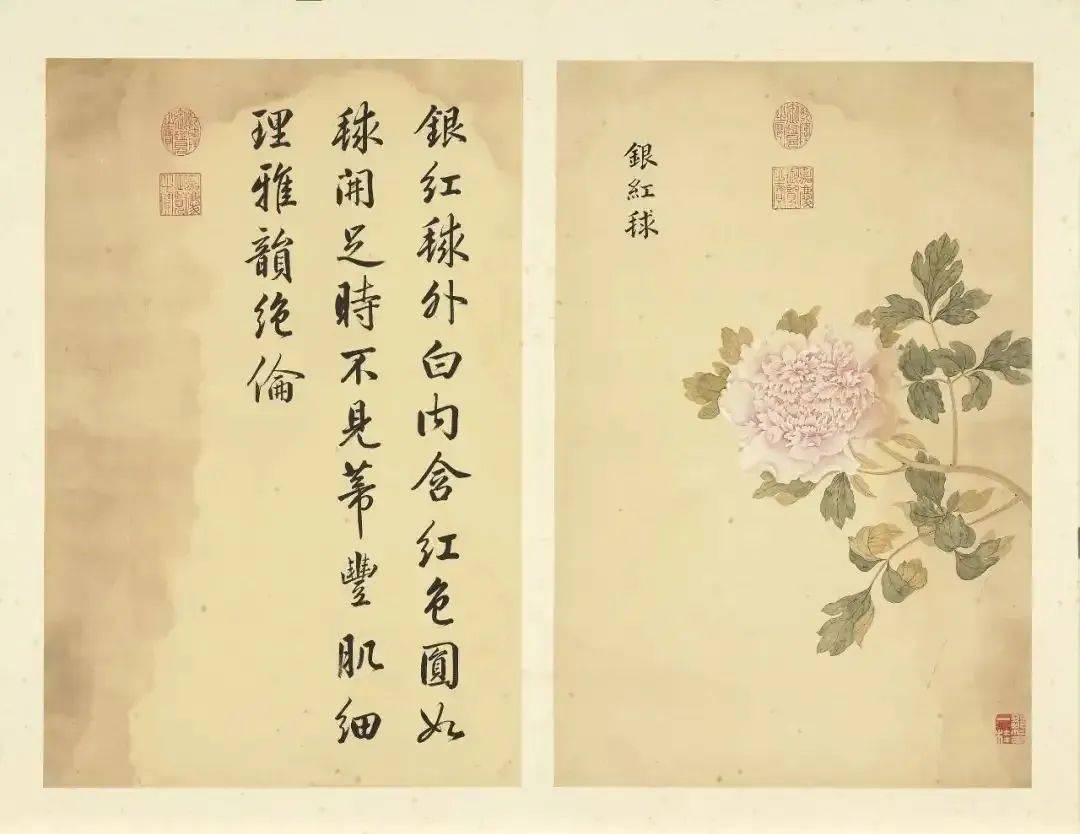 銀紅毬
銀紅毬外白内含紅色圓如
毬開足時不見蒂豐肌細
理雅韻絶倫